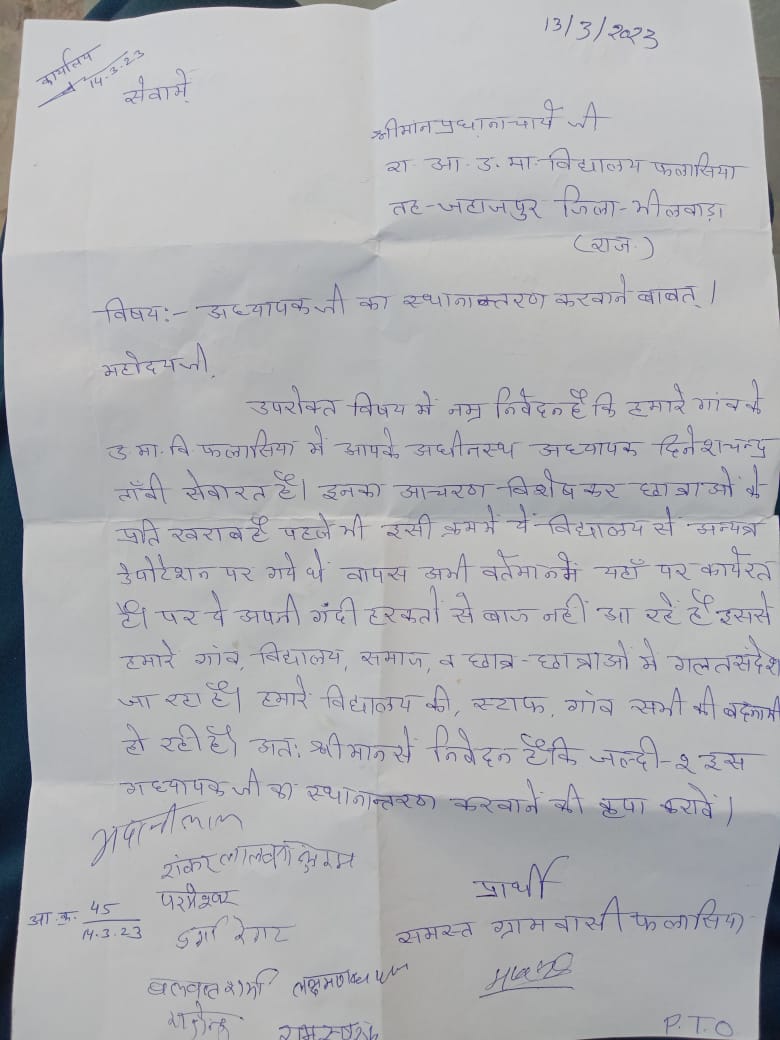 13/3/2023
कार्यालय
14.3.23
सेवामे
श्रीमान प्रधानाचार्य जी
रा. आ. उ. मा. विद्यालय फलासिया
तह-जहाजपुर जिला-भीलवाड़ा
(राज.)
विषय:- अध्यापक जी का स्थानान्तरण करवाने बाबत्।
महोदयजी,
उपरोक्त विषय में नम्र निवेदन है कि हमारे गांव के
उ.मा.वि. फलासिया में आपके अधीनस्थ अध्यापक दिनेशचन्द्र
ताँबी सेवारत है। इनका आचरण विशेष कर छात्राओं के
प्रति खराब है पहले भी इसी क्रम में ये विद्यालय से अन्यत्र
डेपोटेशन पर गये थे वापस अभी वर्तमान में यहाँ पर कार्यरत
है। पर ये अपनी गंदी हरकतों से बाज नहीं आ रहे हैं इससे
हमारे गांव, विद्यालय, समाज, व छात्र-छात्राओं मे गलत संदेश
जा रहा है। हमारे विद्यालय की, स्टाफ, गांव सभी की बदनामी
हो रही है। अत: श्रीमान से निवेदन है कि जल्दी-२ इस
अध्यापक जी का स्थानान्तरण करवाने की कृपा करावें।
भवानीलाल
शंकर लाल
परमेश्वर
प्रार्थी
आ.क्र. 45
14.3.23
दुर्गा रेगर
समस्त ग्रामवासी फलासिया
बलवन्त शर्मा
P.T.O